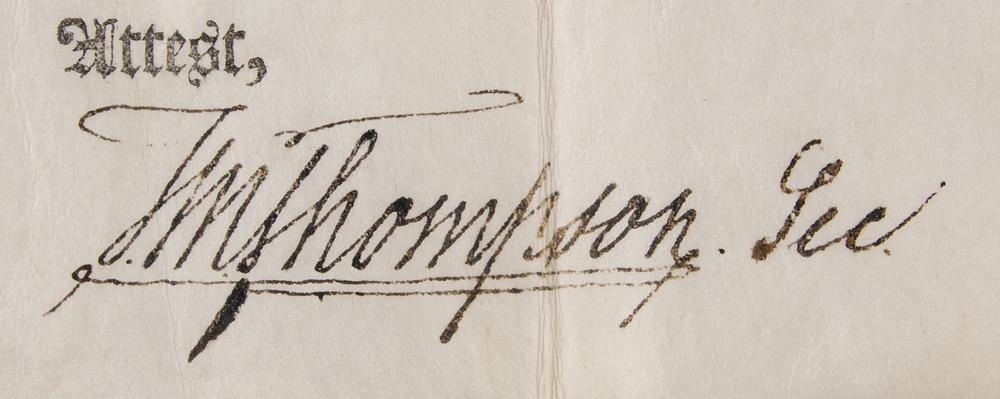 Attest,
Thompson. Sec